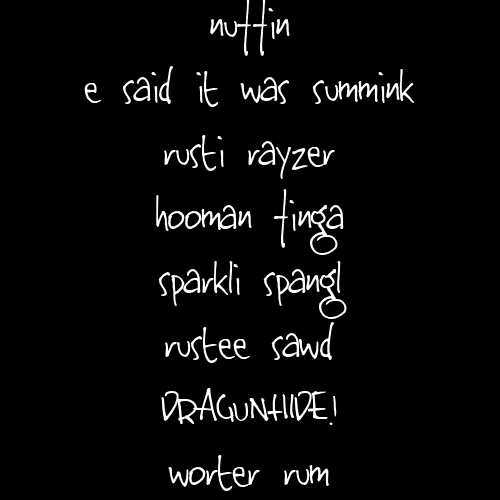 nuffin
e said it was summink
rusti rayzer
hooman finga
sparkli spangl
rustee sawd
DRAGUNHIDE!
worter rum